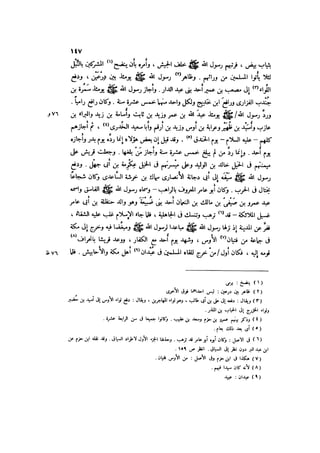 ١٤٧
بثياب بيض، فرتبهم رسول الله ﷺ خلف الجيش، وأمره بأن ينضح(١) المشركين بالنبل
لئلا يأتوا المسلمين من ورائهم. وظاهر(٢) رسول الله ﷺ يومئذ بين درعين، ودفع
اللواء(٣) إلى مصعب بن عمير أحد بنى عبد الدار. وأجاز رسول الله ﷺ يومئذ سمرة بن
جندب الفزارى ورافع بن خديج ولكل واحد منهما خمس عشرة سنة. وكان رافع راميا.
ورد رسول الله ﷺ يومئذ عبد الله بن عمر وزيد بن ثابت وأسامة بن زيد والبراء بن
٧٦ و
عازب وأسيد بن ظهير وعرابة بن أوس وزيد بن أرقم وأبا سعيد الخدرى(٤)، ثم أجازهم
كلهم — عليه السلام — يوم الخندق(٥). وقد قيل إن بعض هؤلاء إنما رده يوم بدر وأجازه
يوم أحد. وإنما رد من لم يبلغ خمس عشرة سنة وأجاز من بلغها. وجعلت قريش على
ميمنتهم فى الخيل خالد بن الوليد وعلى ميسرتهم فى الخيل عكرمة بن أبى جهل. ودفع
رسول الله ﷺ سيفه إلى أبى دجانة الأنصارى سماك بن خرشة الساعدى وكان شجاعا
يختال فى الحرب. وكان أبو عامر المعروف بالراهب — وسماه رسول الله ﷺ الفاسق واسمه
عبد عمرو بن صيفى بن مالك بن النعمان أحد بنى ضبيعة وهو والد حنظلة بن أبى عامر
غسيل الملائكة — قد(٦) ترهب وتنسك فى الجاهلية، فلما جاء الإسلام غلب عليه الشقاء،
ففر عن المدينة إذ نزلها رسول الله ﷺ مباعدا لرسول الله ﷺ ومبغضا فيه وخرج إلى مكة
فى جماعة من فتيان(٧) الأوس، وشهد يوم أحد مع الكفار، ووعد قريشا بانحراف(٨)
قومه إليه، فكان أول من خرج للقاء المسلمين فى عبدان(٩) أهل مكة والأحابيش. فلما
٧٦ ظ
(١) ينضح: يرمى
(٢) ظاهر بين درعين: لبس احداهما فوق الأخرى
(٣) ويقال: دفعه إلى على بن أبى طالب، وهو لواء المهاجرين، ويقال: دفع لواء الأوس إلى أسيد بن حضير
ولواء الخزرج إلى الحباب بن المنذر.
(٤) وذكر بينهم عمرو بن حزم وسعد بن عقيب. وكانوا جميعا فى سن الرابعة عشرة.
(٥) أى بعد ذلك بعام.
(٦) فى الأصل: وكان أبوه أبو عامر قد ترهب. وحذفنا الجزء الأول لاطراد السياق. وقد نقله ابن حزم عن
ابن عبد البر دون نظر إلى السياق. انظر ص ١٥٩.
(٧) هكذا فى ابن حزم وفى الأصل: من الأوس فتيان.
(٨) لأنه كان سيدا فيهم.
(٩) عبدان: عبيد